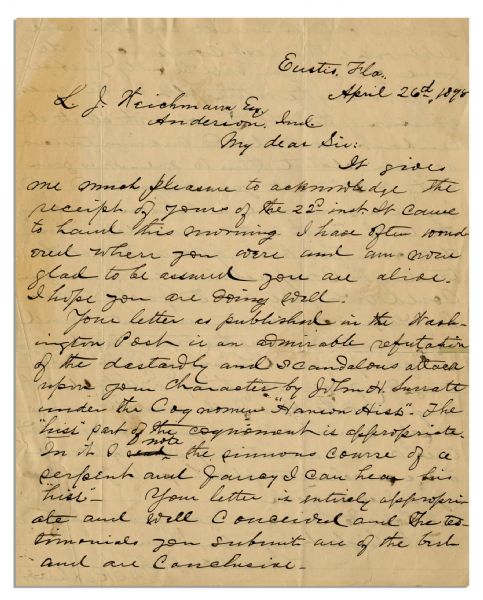 Eustis, Fla.
April 26d, 1898
L. J. Weichmann Esq
Anderson, Ind
My dear Sir:
It gives
me much pleasure to acknowledge the
receipt of yours of the 22d inst. It came
to hand this morning. I have often wond-
ered where you were and am now
glad to be assured you are alive.
I hope you are doing well.
Your letter as published in the Wash-
ington Post is an admirable refutation
of the dastardly and scandalous attack
upon your character by John H. Surratt
under the Cognomen "Hanson Hiss". The
"hiss" part of the cognoment is appropriate.
In it I note the sinuous course of a
serpent and fancy I can hear his
"hiss" - Your letter is entirely appropri-
ate and well conceived and the tes-
timonials you submit are of the best
and are conclusive -